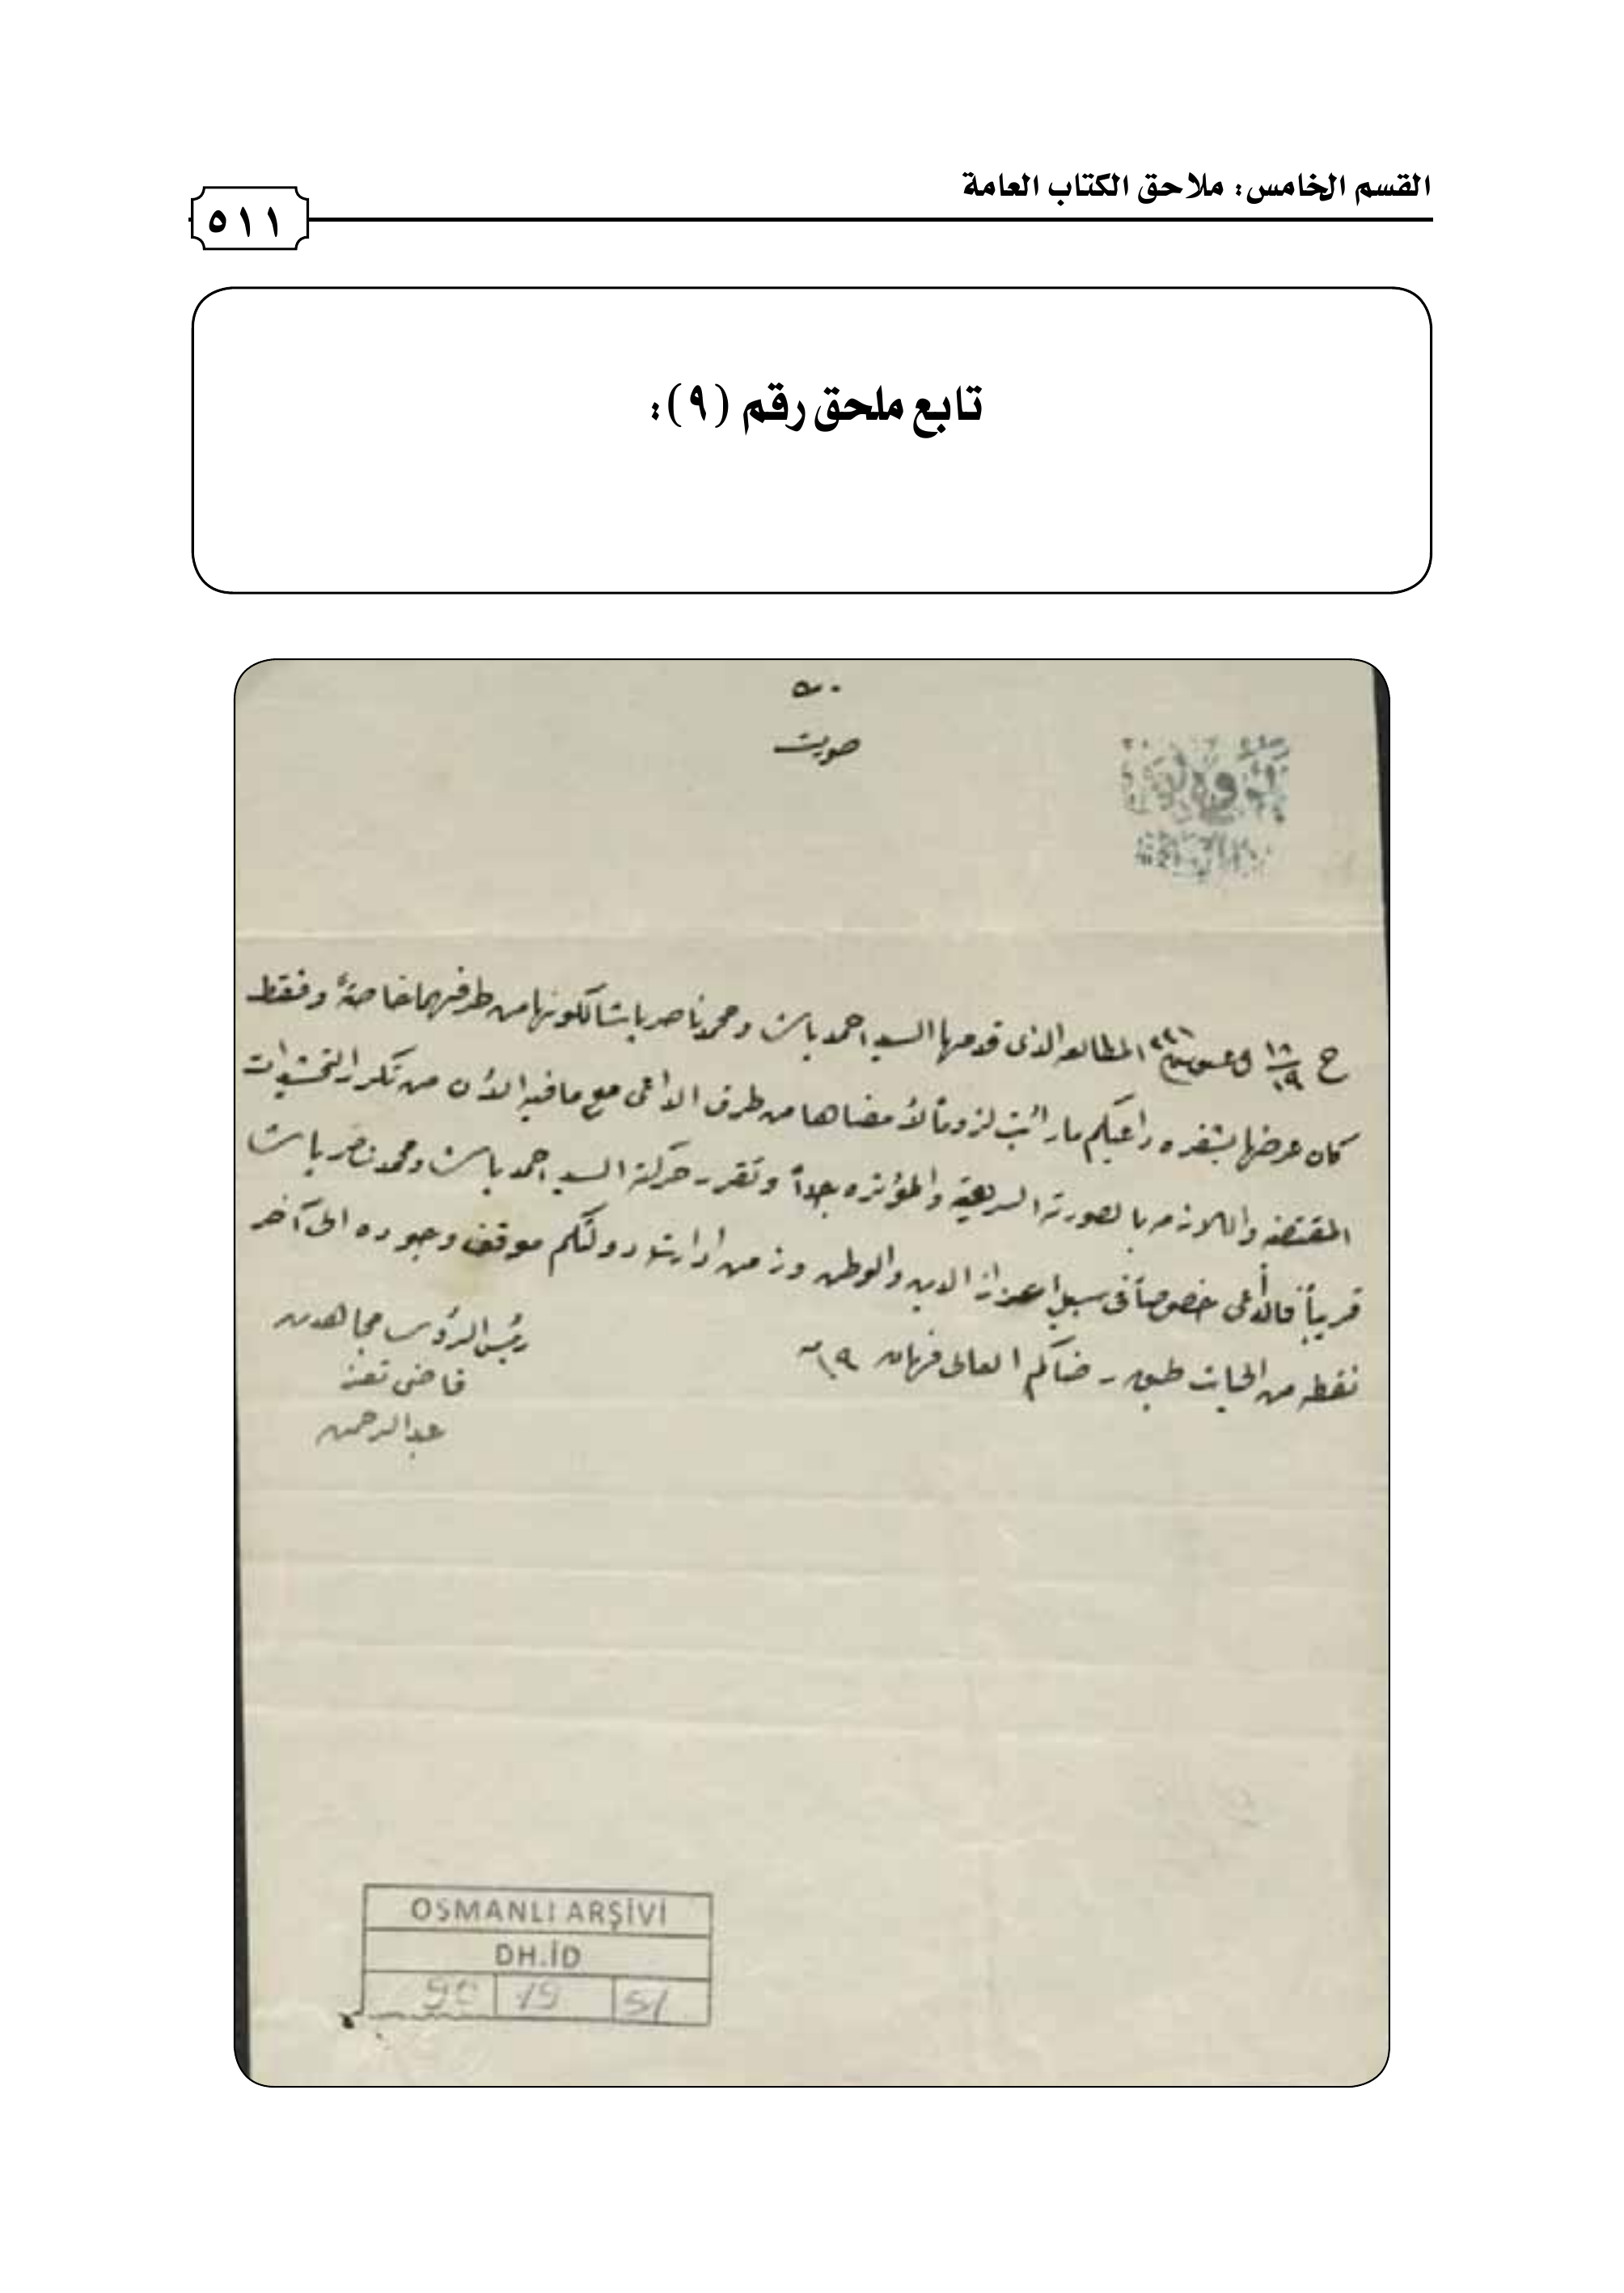 القسم الخامس: ملاحق الكتاب العامة
٥١١
تابع ملحق رقم (٩):
صورت
المطالعه الذى قدمها السيد احمد باشا ومحمد ناصر باشا لكونها من طرفهما خاصة وفقط
كان عرضها بشفره داعيكم ما رائيت لزوماً لأمضاها من طرف الداعى مع ما فيه الأن من تكرر التحشيدات
المقتضه واللازمه بالصورة السريعة والمؤثره جداً وتقرر حركة السيد احمد باشا ومحمد ناصر باشا
قريباً فالداعى خصوصاً فى سبيل اعزاز الدين والوطن وزمن ادارة دولتكم موقف وجوده الى آخر
نقطه من الحيات طبق رضاكم العالى فرمان
رئيس الرؤس مجاهدين
قاضى تعز
عبدالرحمن
OSMANLI ARŞİVİ
DH.İD